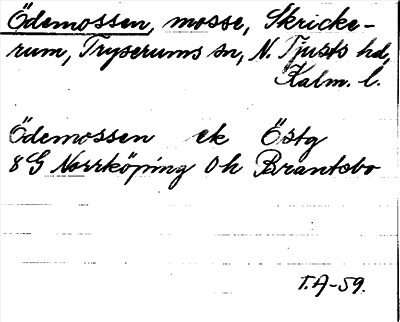 Ödemossen, mosse, Skricke-
rum, Tryserums sn, N. Tjusts hd,
Kalm. l.
Ödemossen ek Östg
8G Norrköping 0h Brantsbo
T.A-59.